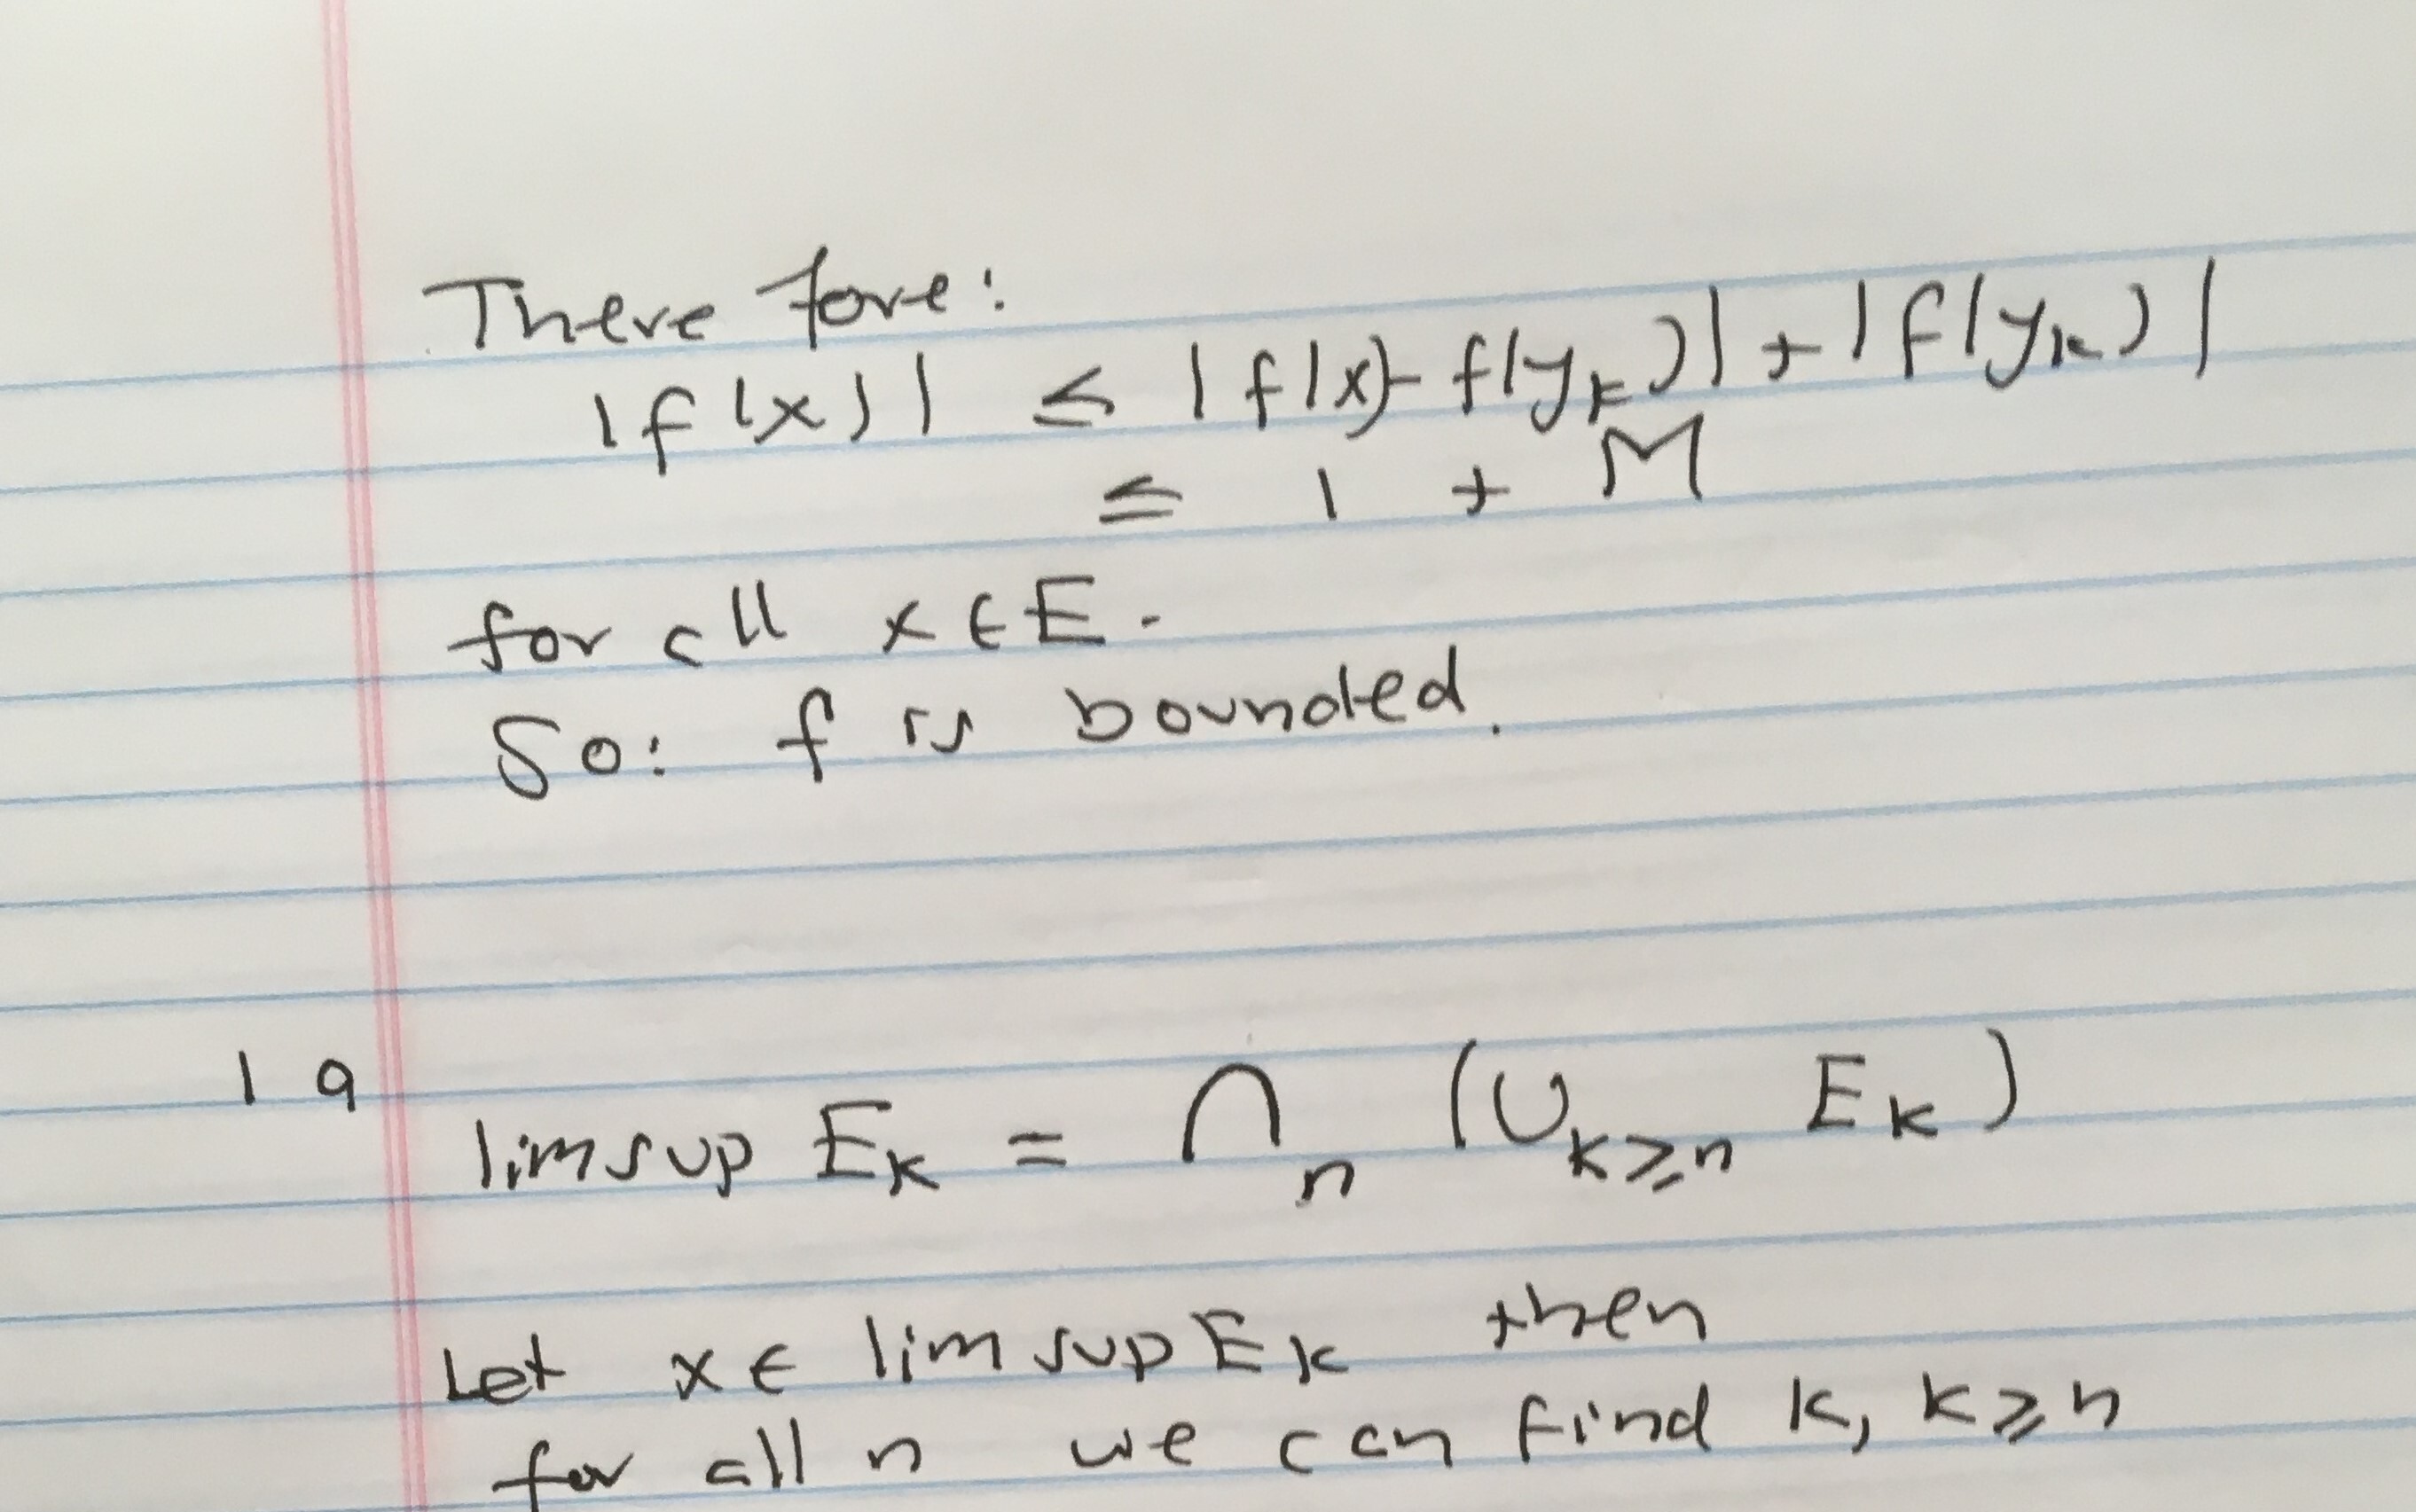 There fore:
|f(x)| ≤ |f(x)- f(y_k)| + |f(y_k)|
≤ 1 + M
for all x ∈ E.
So: f is bounded.
19
limsup E_k = ∩_n (∪_{k≥n} E_k)
Let x ∈ lim sup E_k then
for all n we can find k, k≥n